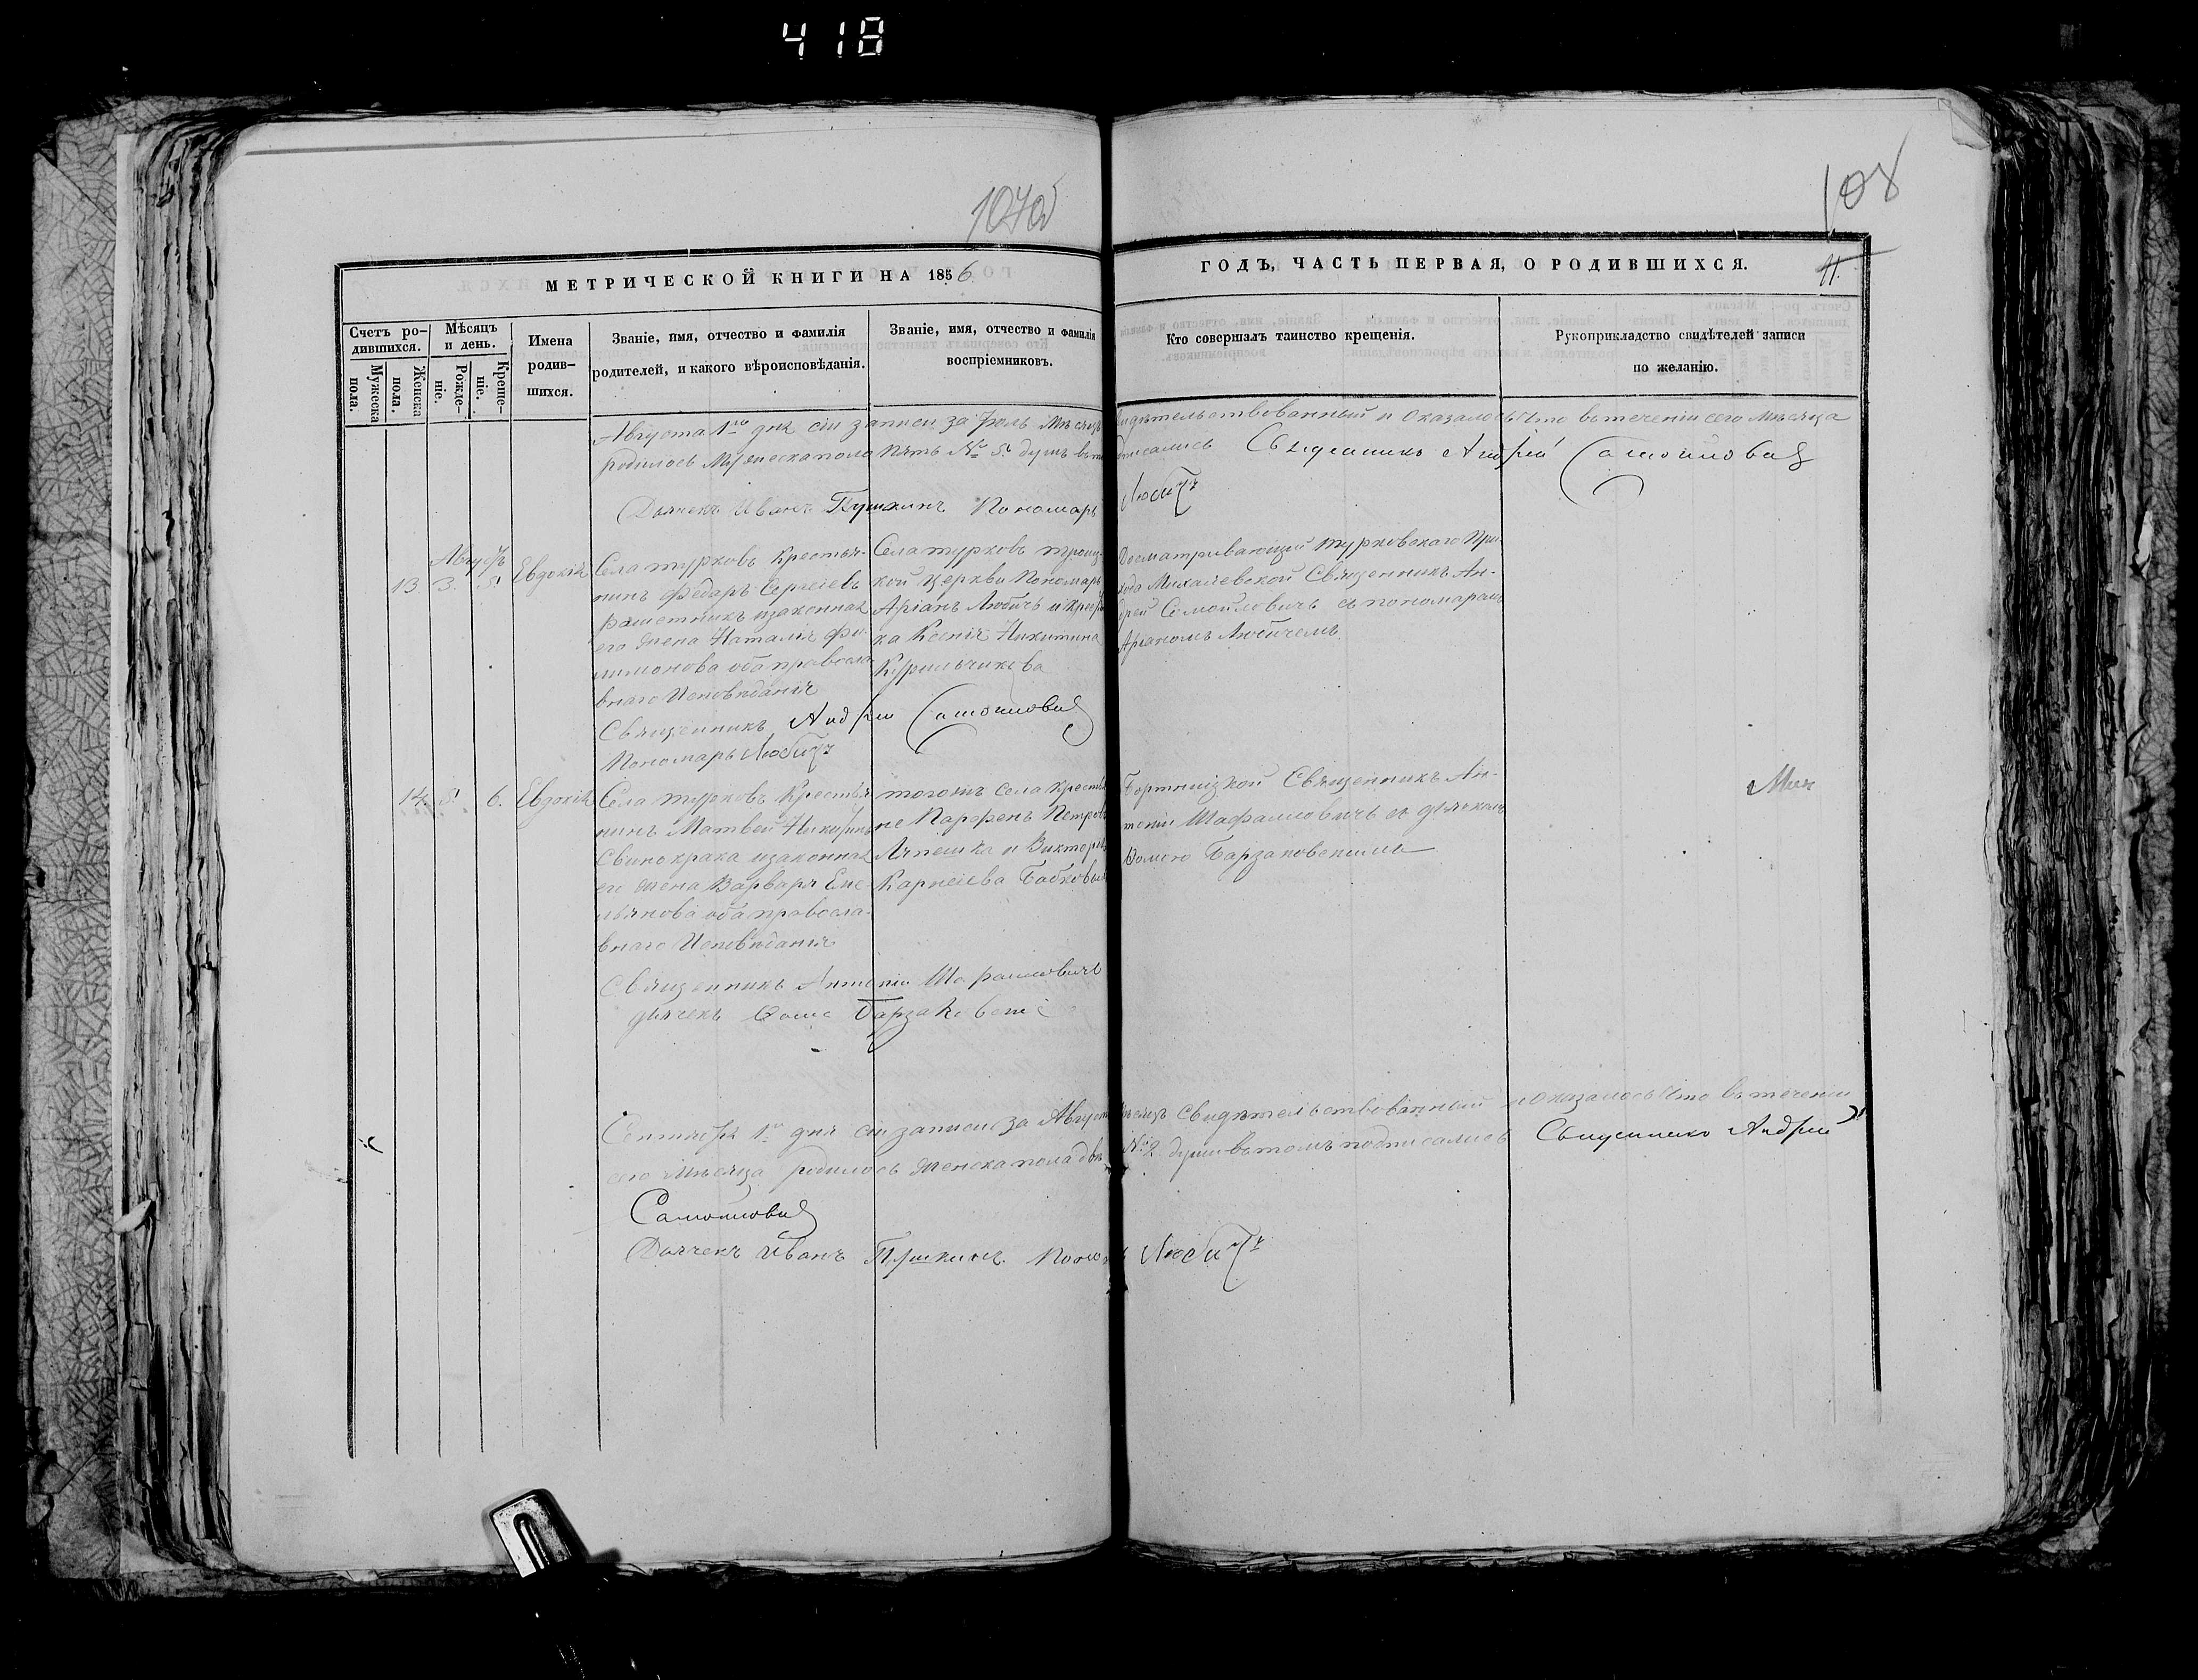 418
107об
108
МЕТРИЧЕСКОЙ КНИГИ НА 1856
ГОДЪ, ЧАСТЬ ПЕРВАЯ, О РОДИВШИХСЯ.
11.
Счетъ ро-
дившихся.
Мужеска
пола.
Женска
пола.
Мѣсяцъ
и день.
Рожде-
ніе.
Креще-
ніе.
Имена
родив-
шихся.
Званіе, имя, отчество и фамилія
родителей, и какого вѣроисповѣданія.
Званіе, имя, отчество и фамилія
воспріемниковъ.
Кто совершалъ таинство крещенія.
Рукоприкладство свидѣтелей записи
по желанію.
Августа 1го дня сіи записи за Іюль Мѣсяцъ свидѣтельствованный и оказалось что въ теченіи сего Мѣсяца
родилось Мужеска пола Пять № 5. душъ въ томъ подписались Священникъ Андрей Самойловичъ
Дьячекъ Иванъ Пушкинъ Пономарь Любичъ
Августъ
13 3. 5. Евдокія
Села Турковъ Крестья-
нинъ Федоръ Сергіевъ
рашетникъ изаконная
его жена Наталія Фи-
лимонова оба правосла-
внаго Исповѣданія
Села Турковъ троиц-
кой Церкви Пономарь
Аріанъ Любичъ и крестья
ка Ксенія Никитина
Курильчикова
Досматривающій Турковскаго При-
хода Михалевской Священникъ Ан-
дрей Самойловичъ съ пономаремъ
Аріаномъ Любичемъ
Священникъ Андрей Самойловичъ
Пономарь Любичъ
14. 5. 6. Евдокія
Села Турковъ Крестья
нинъ Матвей Никифоровъ
Свинокрака изаконная
его жена Варвара Еме-
льянова оба правосла-
внаго Исповѣданія
тогожъ села крестья
не Парфенъ Петровъ
Ляпешка и Викторія
Карпеіева Бобковыя
Бортницкой Священникъ Ан-
тоній Шафаловичъ съ дьячкомъ
Ѳомою Барзаковскимъ
Священникъ Антоній Шафаловичъ
дьячекъ Ѳома Барзаковскій
Сентября 1го дня сіи записи за Августъ Мѣсяцъ свидѣтельствованный и оказалось что въ теченіи
сего Мѣсяца родилось женска пола двѣ № 2 души въ томъ подписались Священникъ Андрей
Самойловичъ
Дьячекъ Иванъ Пушкинъ. Пономарь Любичъ